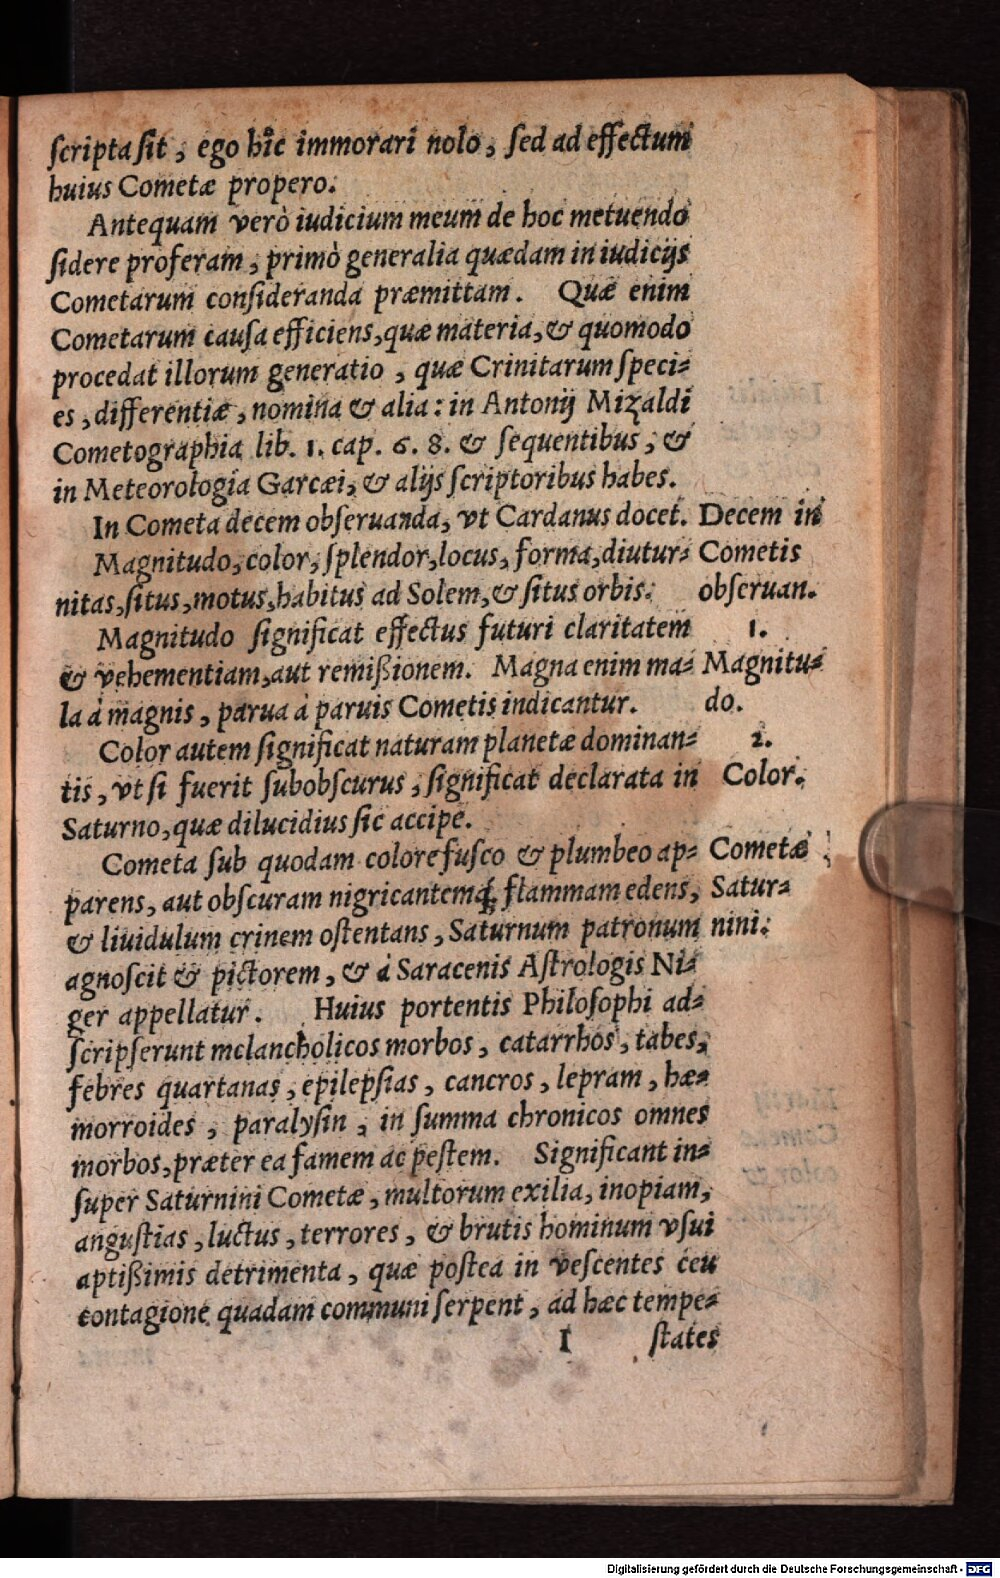 ſcripta ſit, ego hîc immorari nolo, ſed ad effectum
huius Cometæ propero.
Antequam verò iudicium meum de hoc metuendo
ſidere proferam, primò generalia quædam in iudicijs
Cometarum conſideranda præmittam. Quæ enim
Cometarum cauſa efficiens, quæ materia, & quomodo
procedat illorum generatio, quæ Crinitarum ſpeci⸗
es, differentiæ, nomina & alia: in Antonij Mizaldi
Cometographia lib. 1. cap. 6. 8. & ſequentibus, &
in Meteorologia Garcæi, & alijs ſcriptoribus habes.
In Cometa decem obſeruanda, vt Cardanus docet.
Magnitudo, color, ſplendor, locus, forma, diutur⸗
nitas, ſitus, motus, habitus ad Solem, & ſitus orbis.
Decem in
Cometis
obſeruan.
Magnitudo ſignificat effectus futuri claritatem
& vehementiam, aut remißionem. Magna enim ma⸗
la à magnis, parua à paruis Cometis indicantur.
1.
Magnitu⸗
do.
Color autem ſignificat naturam planetæ dominan⸗
tis, vt ſi fuerit ſubobſcurus, ſignificat declarata in
Saturno, quæ dilucidius ſic accipe.
2.
Color.
Cometa ſub quodam colore fuſco & plumbeo ap⸗
parens, aut obſcuram nigricantemq́; flammam edens,
& liuidulum crinem oſtentans, Saturnum patronum
agnoſcit & pictorem, & à Saracenis Aſtrologis Ni⸗
ger appellatur. Huius portentis Philoſophi ad⸗
ſcripſerunt melancholicos morbos, catarrhos, tabes,
febres quartanas, epilepſias, cancros, lepram, hæ⸗
morroides, paralyſin, in ſumma chronicos omnes
morbos, præter ea famem ac peſtem. Significant in⸗
ſuper Saturnini Cometæ, multorum exilia, inopiam,
anguſtias, luctus, terrores, & brutis hominum vſui
aptißimis detrimenta, quæ poſtea in veſcentes ceu
contagione quadam communi ſerpent, ad hæc tempe⸗
Cometæ
Satur⸗
nini.
I ſtates
Digitalisierung gefördert durch die Deutsche Forschungsgemeinschaft - DFG